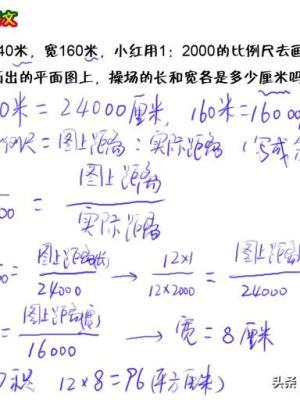 文
40米，宽160米，小红用1：2000的比例尺去画
画出的平面图上，操场的长和宽各是多少厘米吗
0米=24000厘米，160米=16000
例尺=图上距离：实际距离（写成分
00 = 图上距离/实际距离
= 图上距离(长)/24000 → 12×1/12×2000 = 图上距离/24000
= 图上距离(宽)/16000 → 宽=8厘米
积 12×8=96(平方厘米)
头条